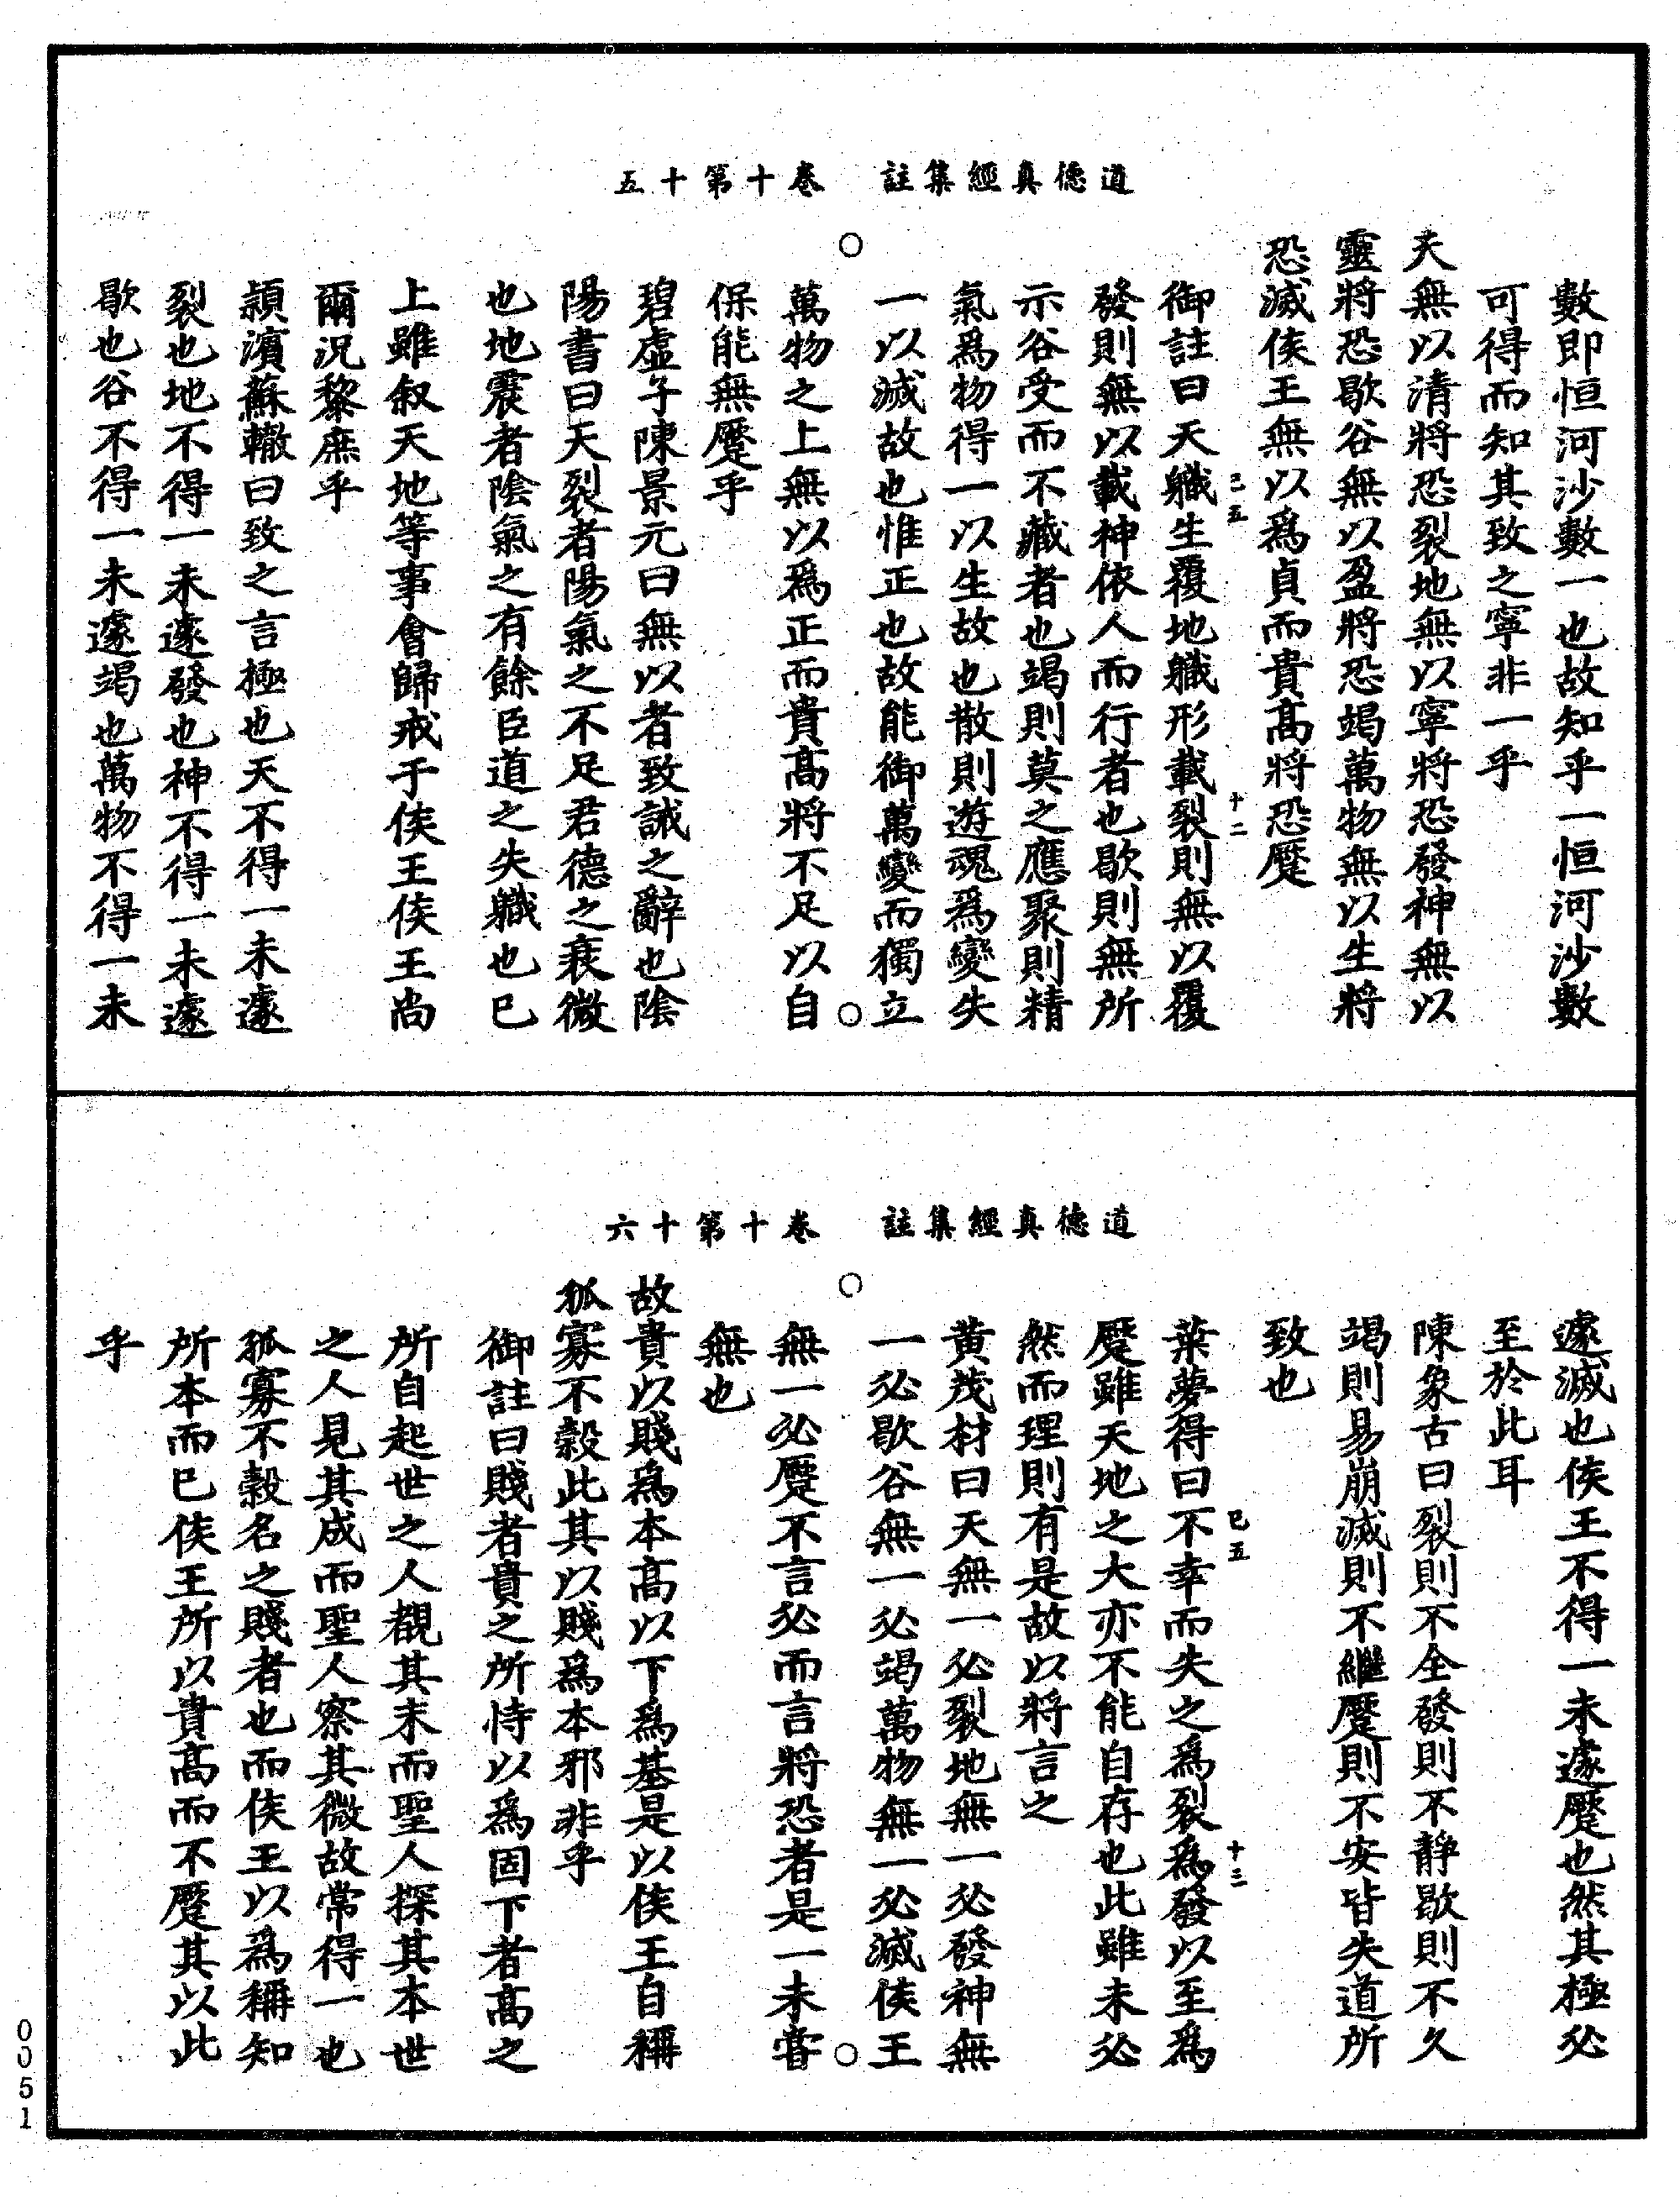 道德真經集註　卷十第十五
數即恒河沙數一也故知乎一恒河沙數
可得而知其致之寧非一乎
天無以清將恐裂地無以寧將恐發神無以
靈將恐歇谷無以盈將恐竭萬物無以生將
恐滅侯王無以爲貞而貴高將恐蹷
己五
十二
御註曰天軄生覆地軄形載裂則無以覆
發則無以載神依人而行者也歇則無所
示谷受而不藏者也竭則莫之應聚則精
氣爲物得一以生故也散則遊魂爲變失
一以滅故也惟正也故能御萬變而獨立
萬物之上無以爲正而貴高將不足以自
保能無蹷乎
碧虛子陳景元曰無以者致誡之辭也陰
陽書曰天裂者陽氣之不足君德之衰微
也地震者陰氣之有餘臣道之失軄也已
上雖叙天地等事會歸戒于侯王侯王尚
爾況黎庶乎
頴濵蘇轍曰致之言極也天不得一未遽
裂也地不得一未遽發也神不得一未遽
歇也谷不得一未遽竭也萬物不得一未
道德真經集註　卷十第十六
遽滅也侯王不得一未遽蹷也然其極必
至於此耳
陳象古曰裂則不全發則不靜歇則不久
竭則易崩滅則不繼蹷則不安皆失道所
致也
己五
十三
葉夢得曰不幸而失之爲裂爲發以至爲
蹷雖天地之大亦不能自存也此雖未必
然而理則有是故以將言之
黄茂材曰天無一必裂地無一必發神無
一必歇谷無一必竭萬物無一必滅侯王
無一必蹷不言必而言將恐者是一未甞
無也
故貴以賤爲本高以下爲基是以侯王自稱
孤寡不穀此其以賤爲本邪非乎
御註曰賤者貴之所恃以爲固下者高之
所自起世之人觀其末而聖人探其本世
之人見其成而聖人察其微故常得一也
孤寡不穀名之賤者也而侯王以爲稱知
所本而已侯王所以貴高而不蹷其以此
乎
0051